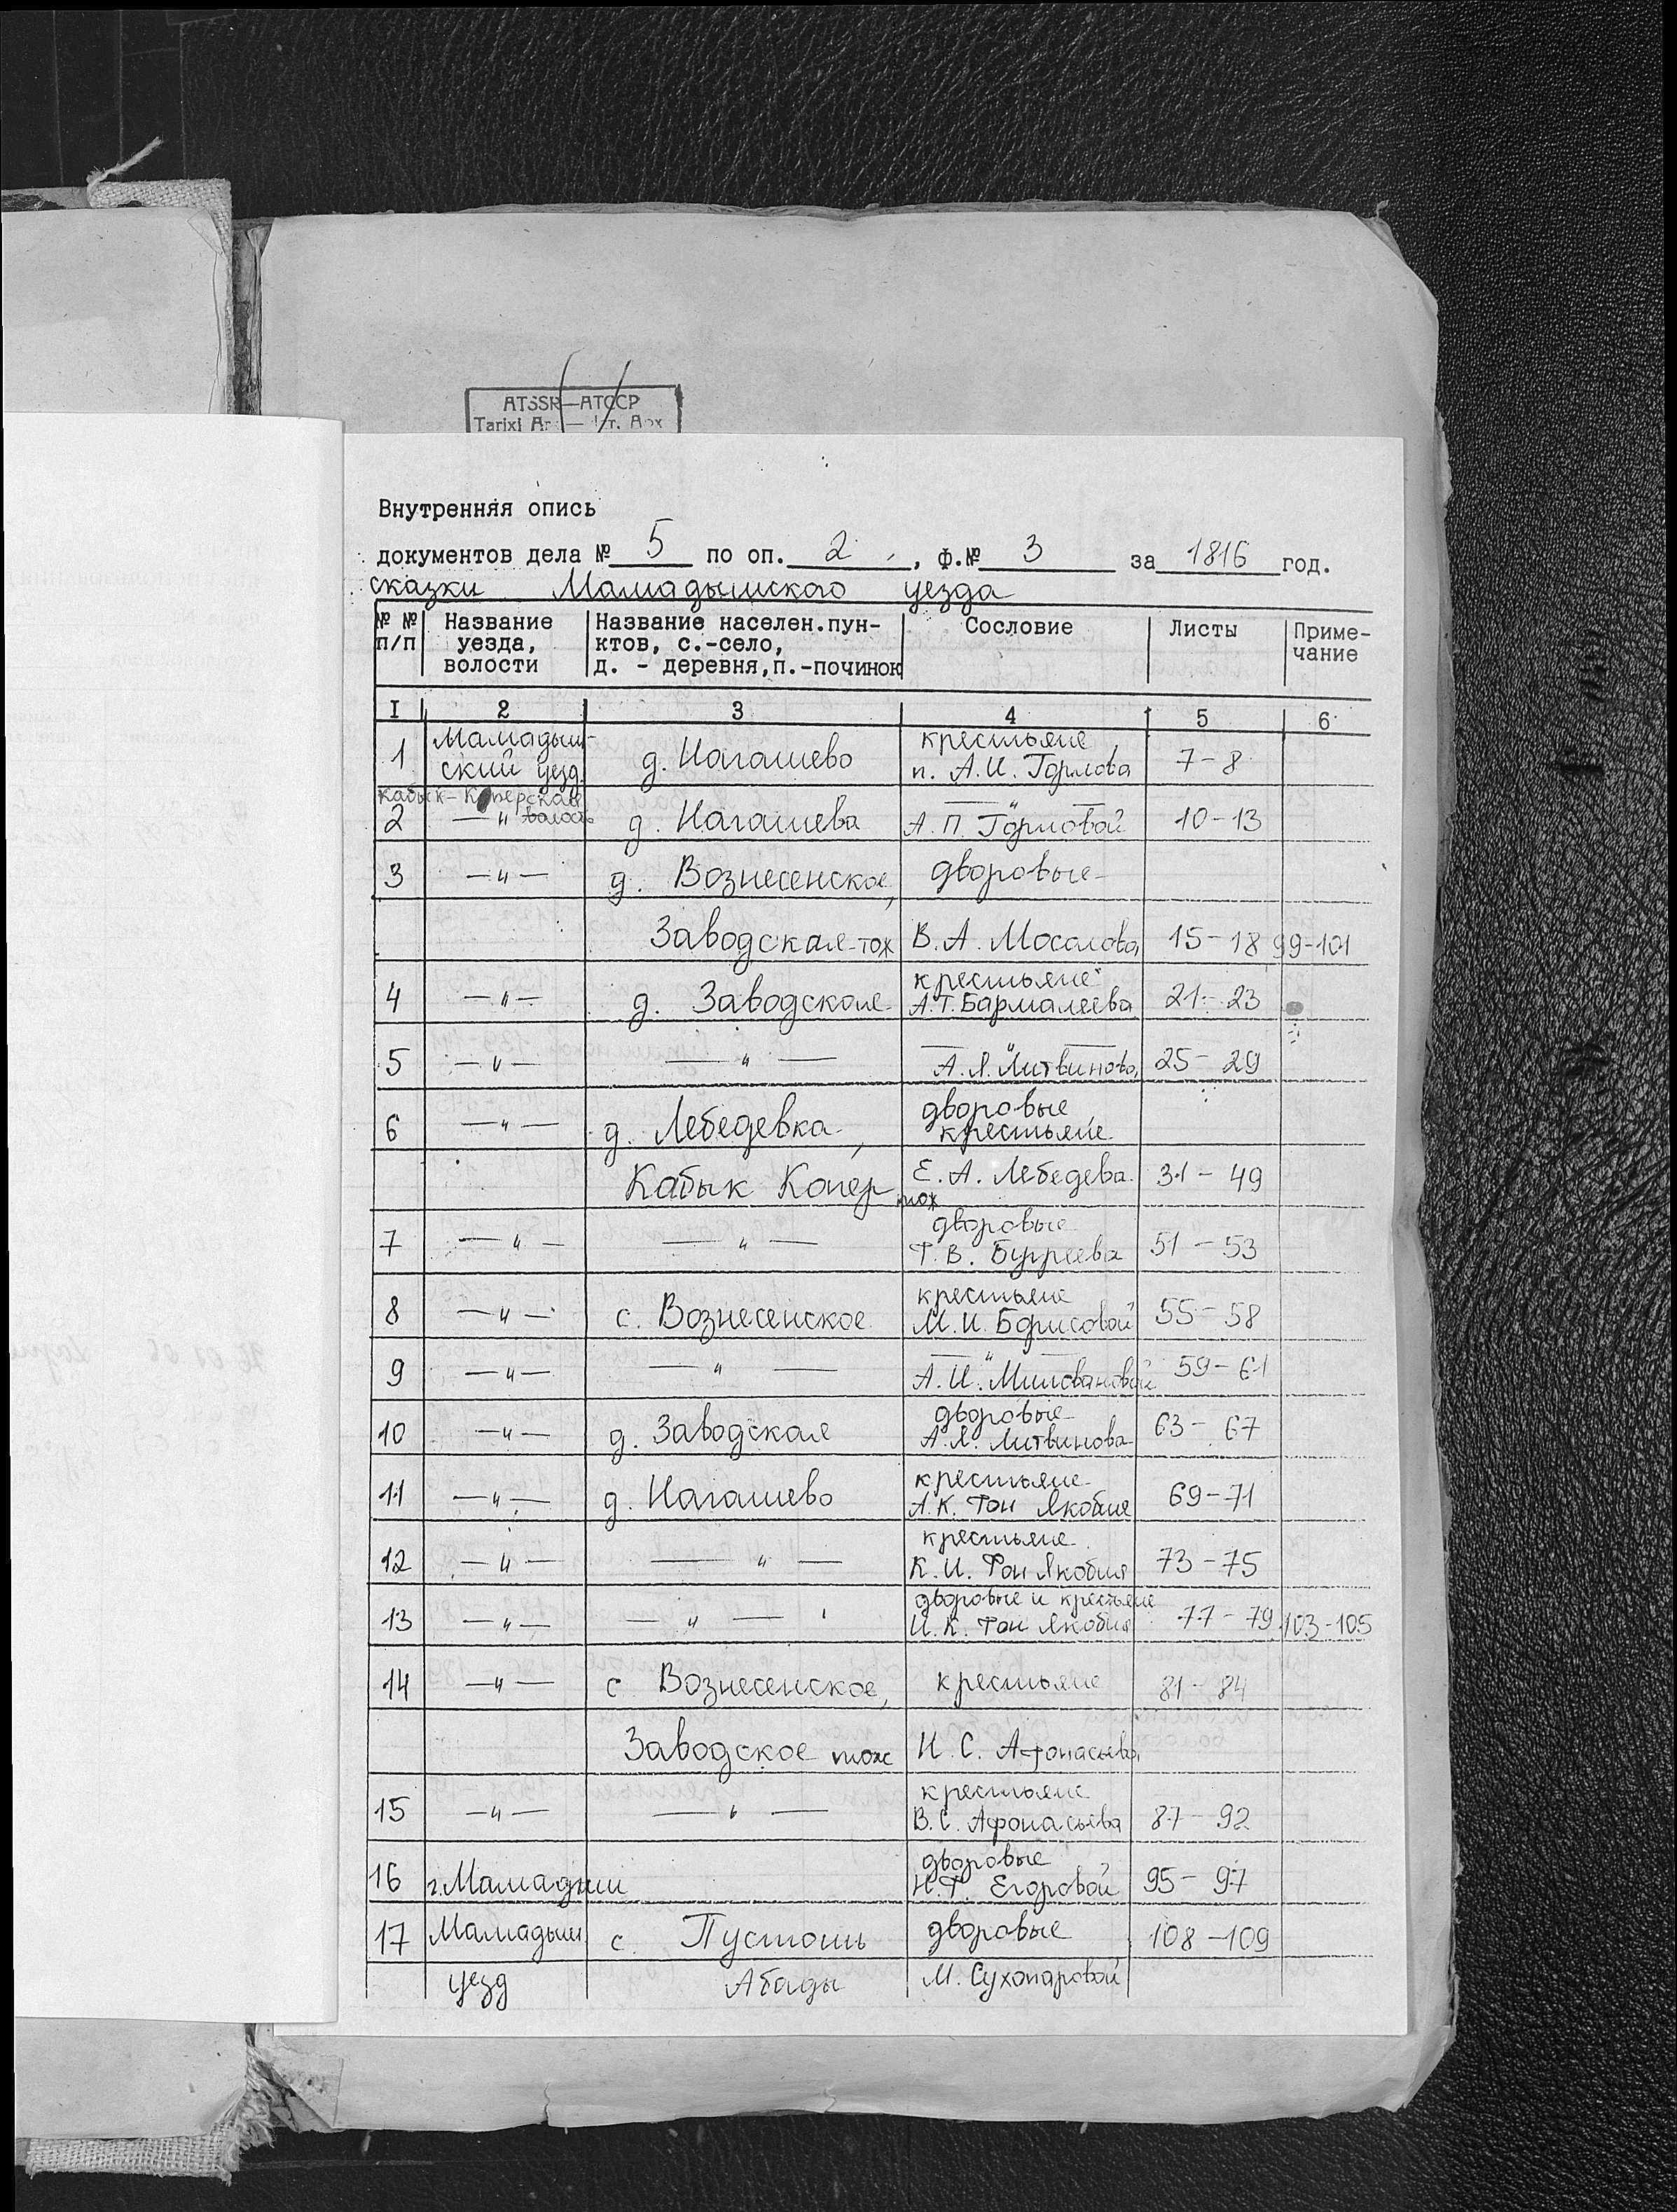 ATSSR—АТССР
Tarixi Ar — Ист. Арх
Внутренняя опись
документов дела № 5 по оп. 2, ф.№ 3 за 1816 год.
сказки Мамадышского уезда
№ № п/п | Название уезда, волости | Название населен.пунктов, с.-село, д. - деревня,п.-починок | Сословие | Листы | Приме-чание
I 2 3 4 5 6
1 Мамадыш-ский уезд д. Нагашево крестьяне п. А.И. Горлова 7-8
Кабык-Коперская волость
2 —"— д. Нагашева —"— А.П. Горловой 10-13
3 —"— д. Вознесенское, дворовые
Заводская-тож В.А. Мосолова 15-18, 99-101
4 —"— д. Заводская крестьяне А.Т. Бармалеева 21-23
5 —"— —"— —"— А.Я. Литвинова 25-29
6 —"— д. Лебедевка, дворовые крестьяне
Кабык Копер тож Е.А. Лебедева 31-49
7 —"— —"— дворовые Т.В. 51-53
8 —"— с. Вознесенское крестьяне М.И. Борисовой 55-58
9 —"— —"— —"— А.И. Миловановой 59-61
10 —"— д. Заводская дворовые А.Я. Литвинова 63-67
11 —"— д. Нагашево крестьяне А.К. Фон Якобия 69-71
12 —"— —"— крестьяне К.И. Фон Якобия 73-75
13 —"— —"— дворовые и крестьяне И.К. Фон Якобия 77-79, 103-105
14 —"— с Вознесенское, крестьяне 81-84
Заводское тож Н.С. Афонасьева
15 —"— —"— крестьяне В.С. Афонасьева 87-92
16 г.Мамадыш дворовые Н.Г. Егоровой 95-97
17 Мамадыш с. Пустошь дворовые 108-109
уезд Абады М. Сухопаровой